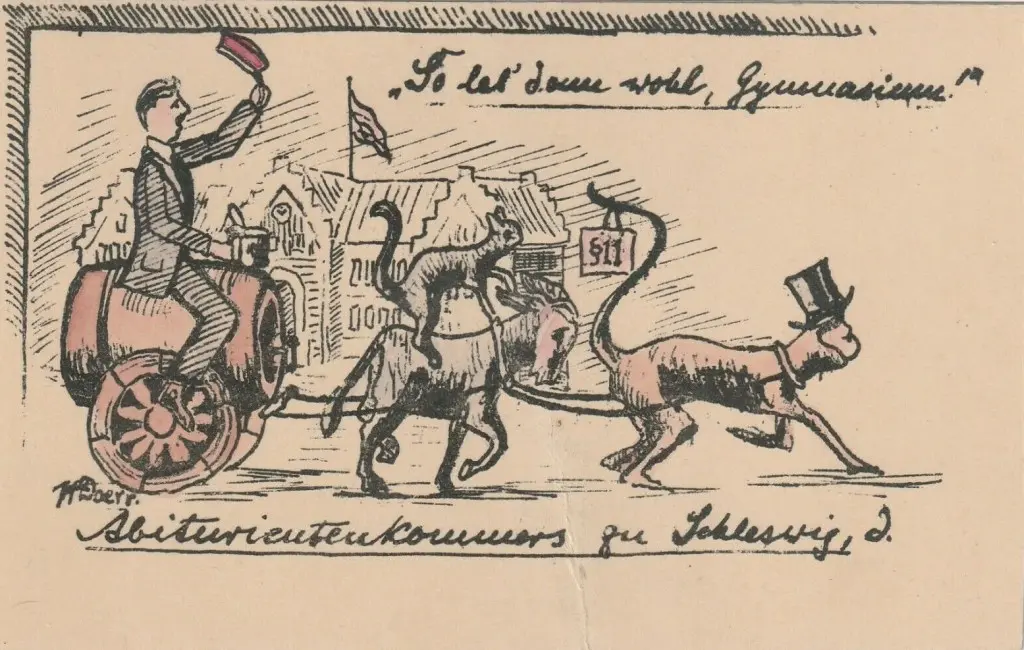 „So leb' denn wohl, Gymnasium!"
§11
WDoerr.
Abiturientenkommers zu Schleswig, d.